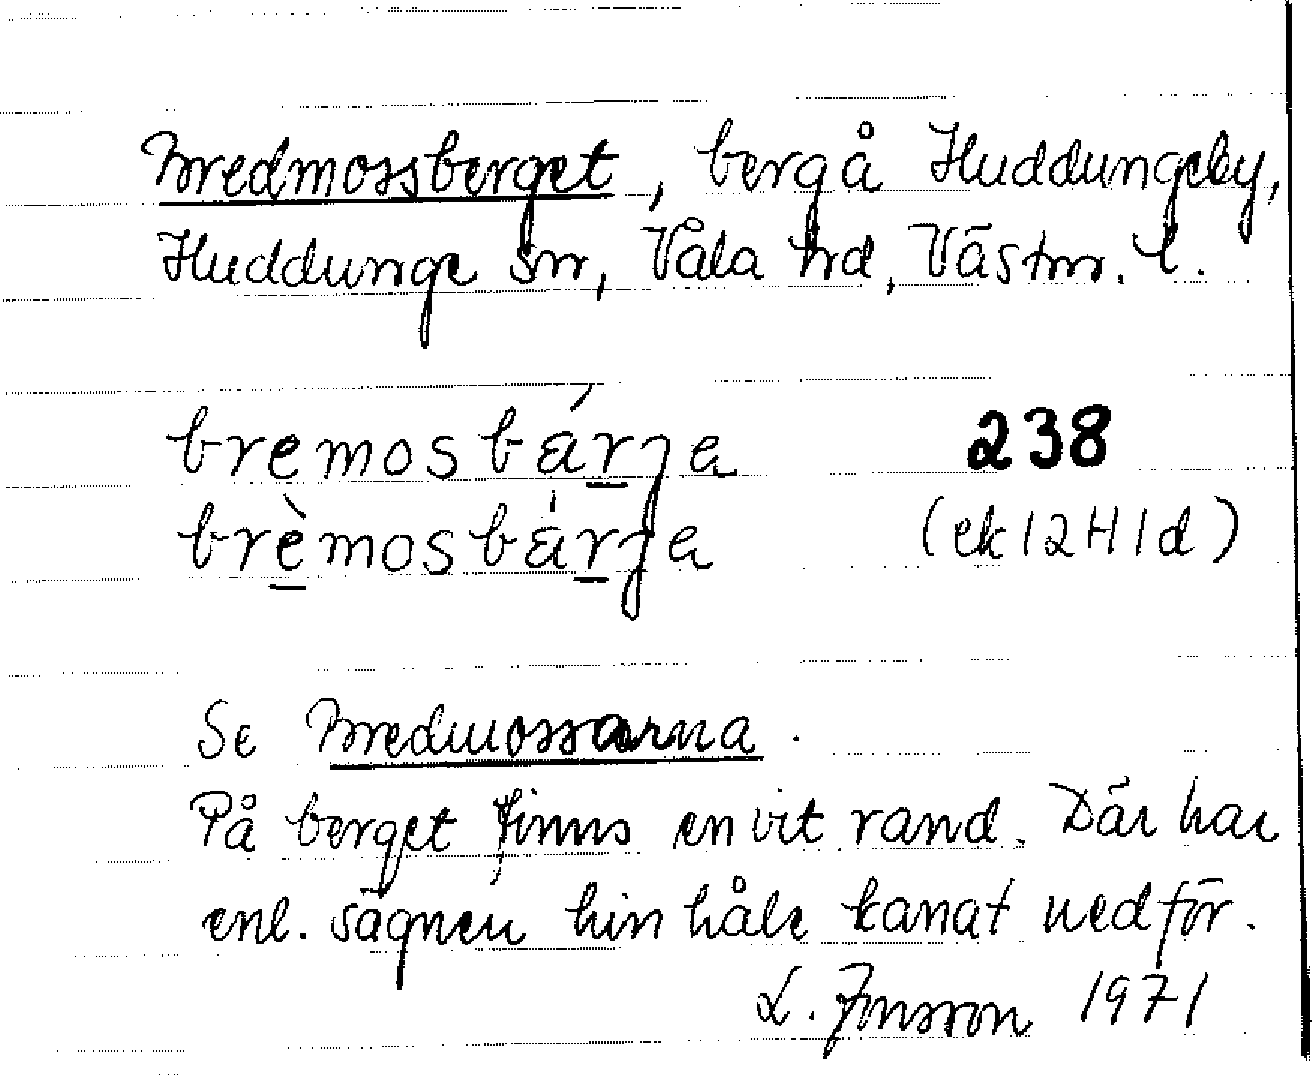 Bredmossberget, berg å Huddungeby,
Huddunge sn, Våla hd, Västm. l.
bremosbárja 238
brèmosbárja (ek 12 H 1 d)
Se Bredmossarna.
På berget finns en vit rand. Där har
enl. sägnen hin håle kanat nedför.
L. Jonsson 1971